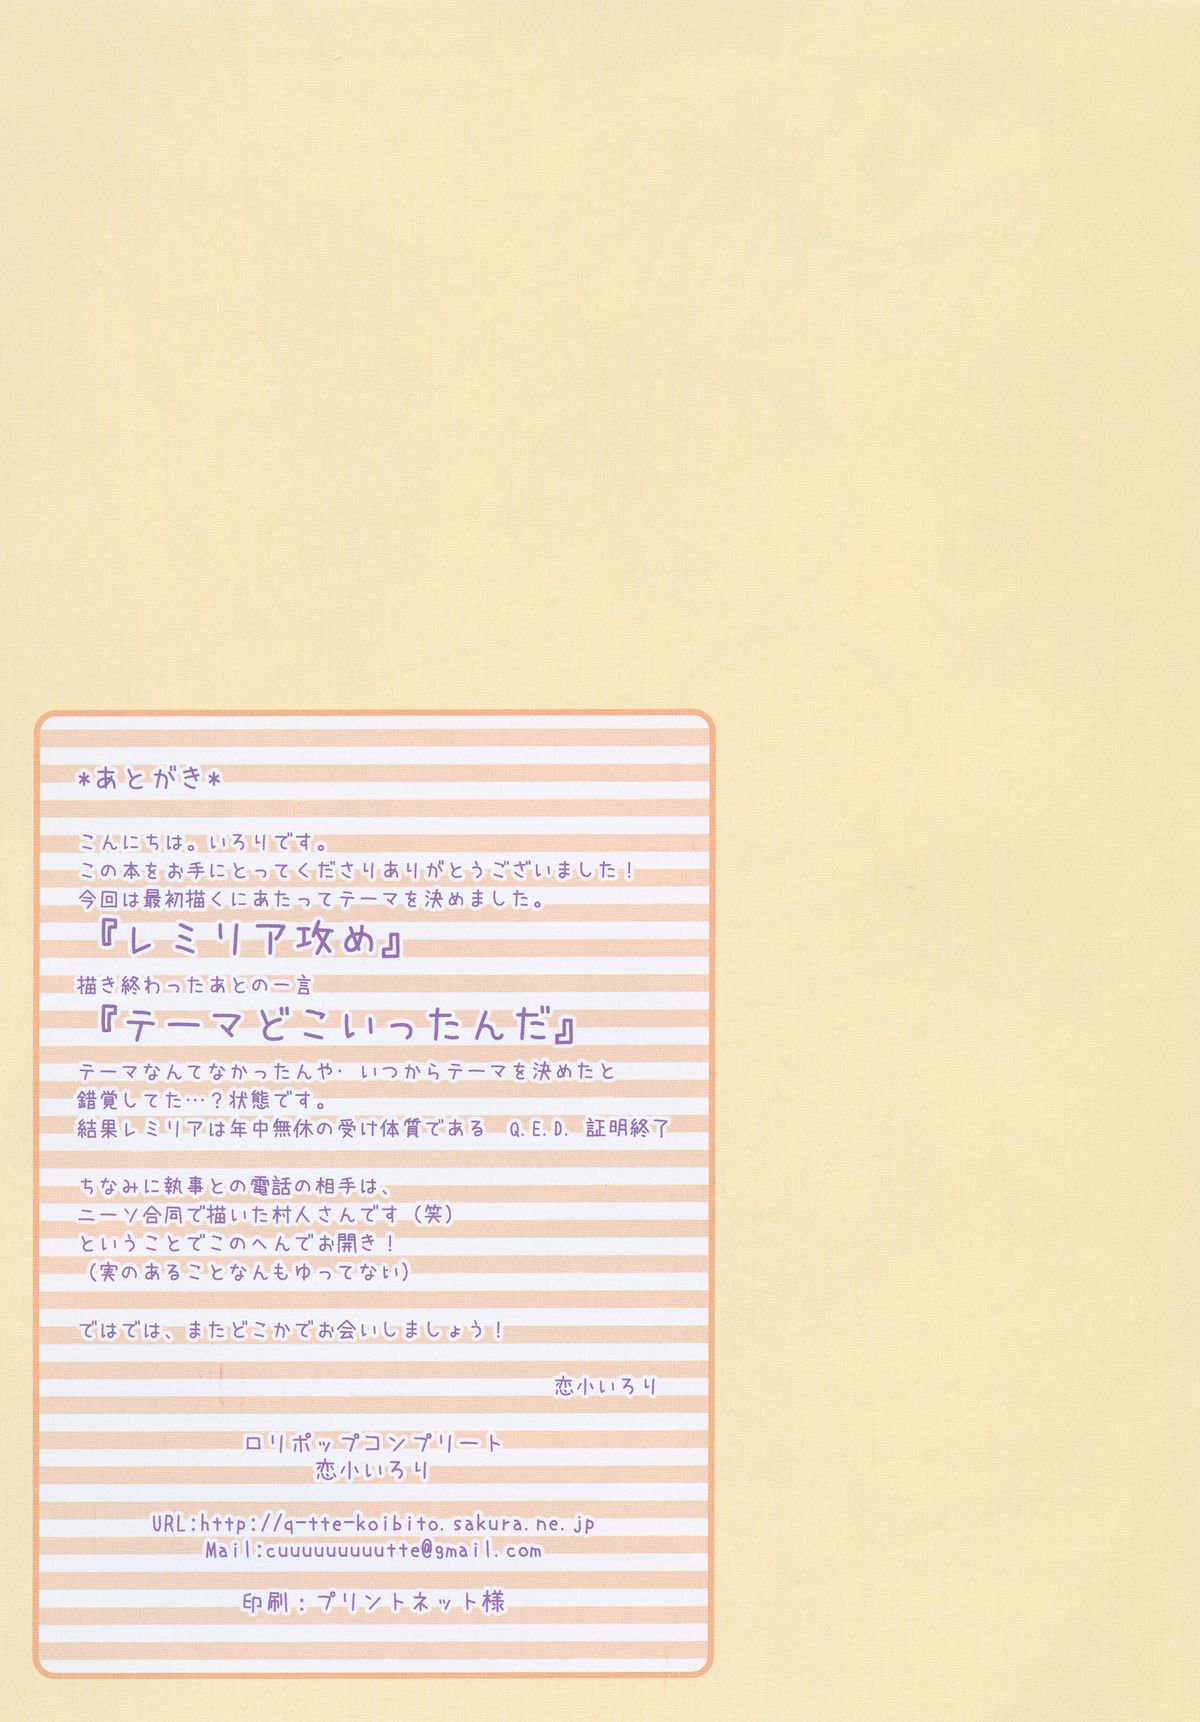 *あとがき*
こんにちは。いろりです。
この本をお手にとってくださりありがとうございました！
今回は最初描くにあたってテーマを決めました。
『レミリア攻め』
描き終わったあとの一言
『テーマどこいったんだ』
テーマなんてなかったんや・いつからテーマを決めたと
錯覚してた…？状態です。
結果レミリアは年中無休の受け体質である　Q.E.D. 証明終了
ちなみに執事との電話の相手は、
ニーソ合同で描いた村人さんです（笑）
ということでこのへんでお開き！
（実のあることなんもゆってない）
ではでは、またどこかでお会いしましょう！
恋小いろり
ロリポップコンプリート
恋小いろり
URL:http://q-tte-koibito.sakura.ne.jp
Mail:cuuuuuuuuutte@gmail.com
印刷：プリントネット様